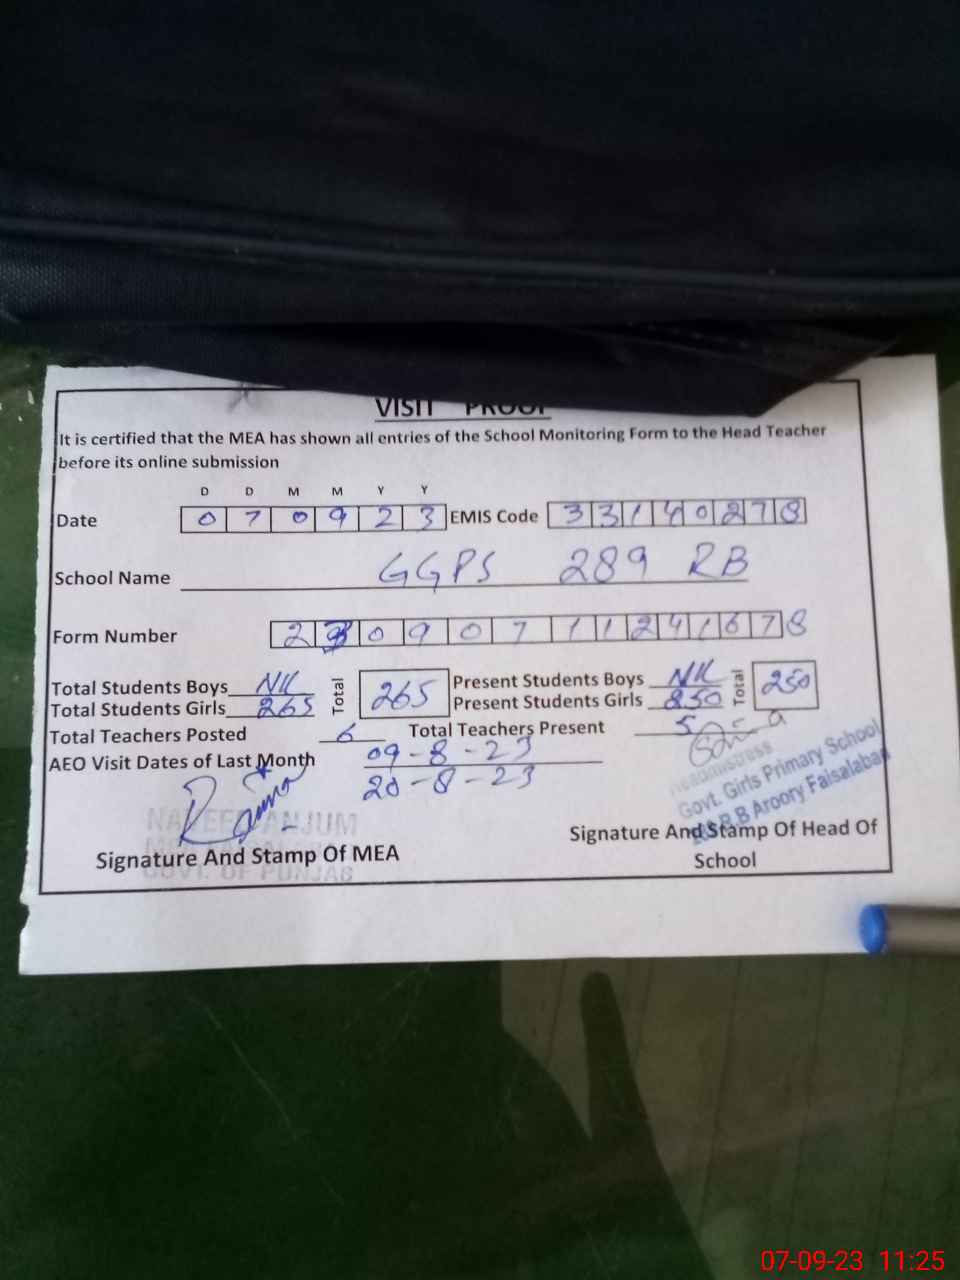 VISIT PROOF
It is certified that the MEA has shown all entries of the School Monitoring Form to the Head Teacher
before its online submission
D D M M Y Y
Date 0 7 0 9 2 3 EMIS Code 3 3 1 4 0 2 7 8
School Name GGPS 289 RB
Form Number 2 3 0 9 0 7 1 1 2 4 1 6 7 8
Total Students Boys NIL Total 265 Present Students Boys NIL Total 250
Total Students Girls 265 Present Students Girls 250
Total Teachers Posted 6 Total Teachers Present 5
AEO Visit Dates of Last Month 09-8-23
20-8-23
Headmistress
Govt. Girls Primary School
R.B Aroory Faisalabad
ANJUM
GOVT. OF PUNJAB
Signature And Stamp Of MEA
Signature And Stamp Of Head Of
School
07-09-23 11:25